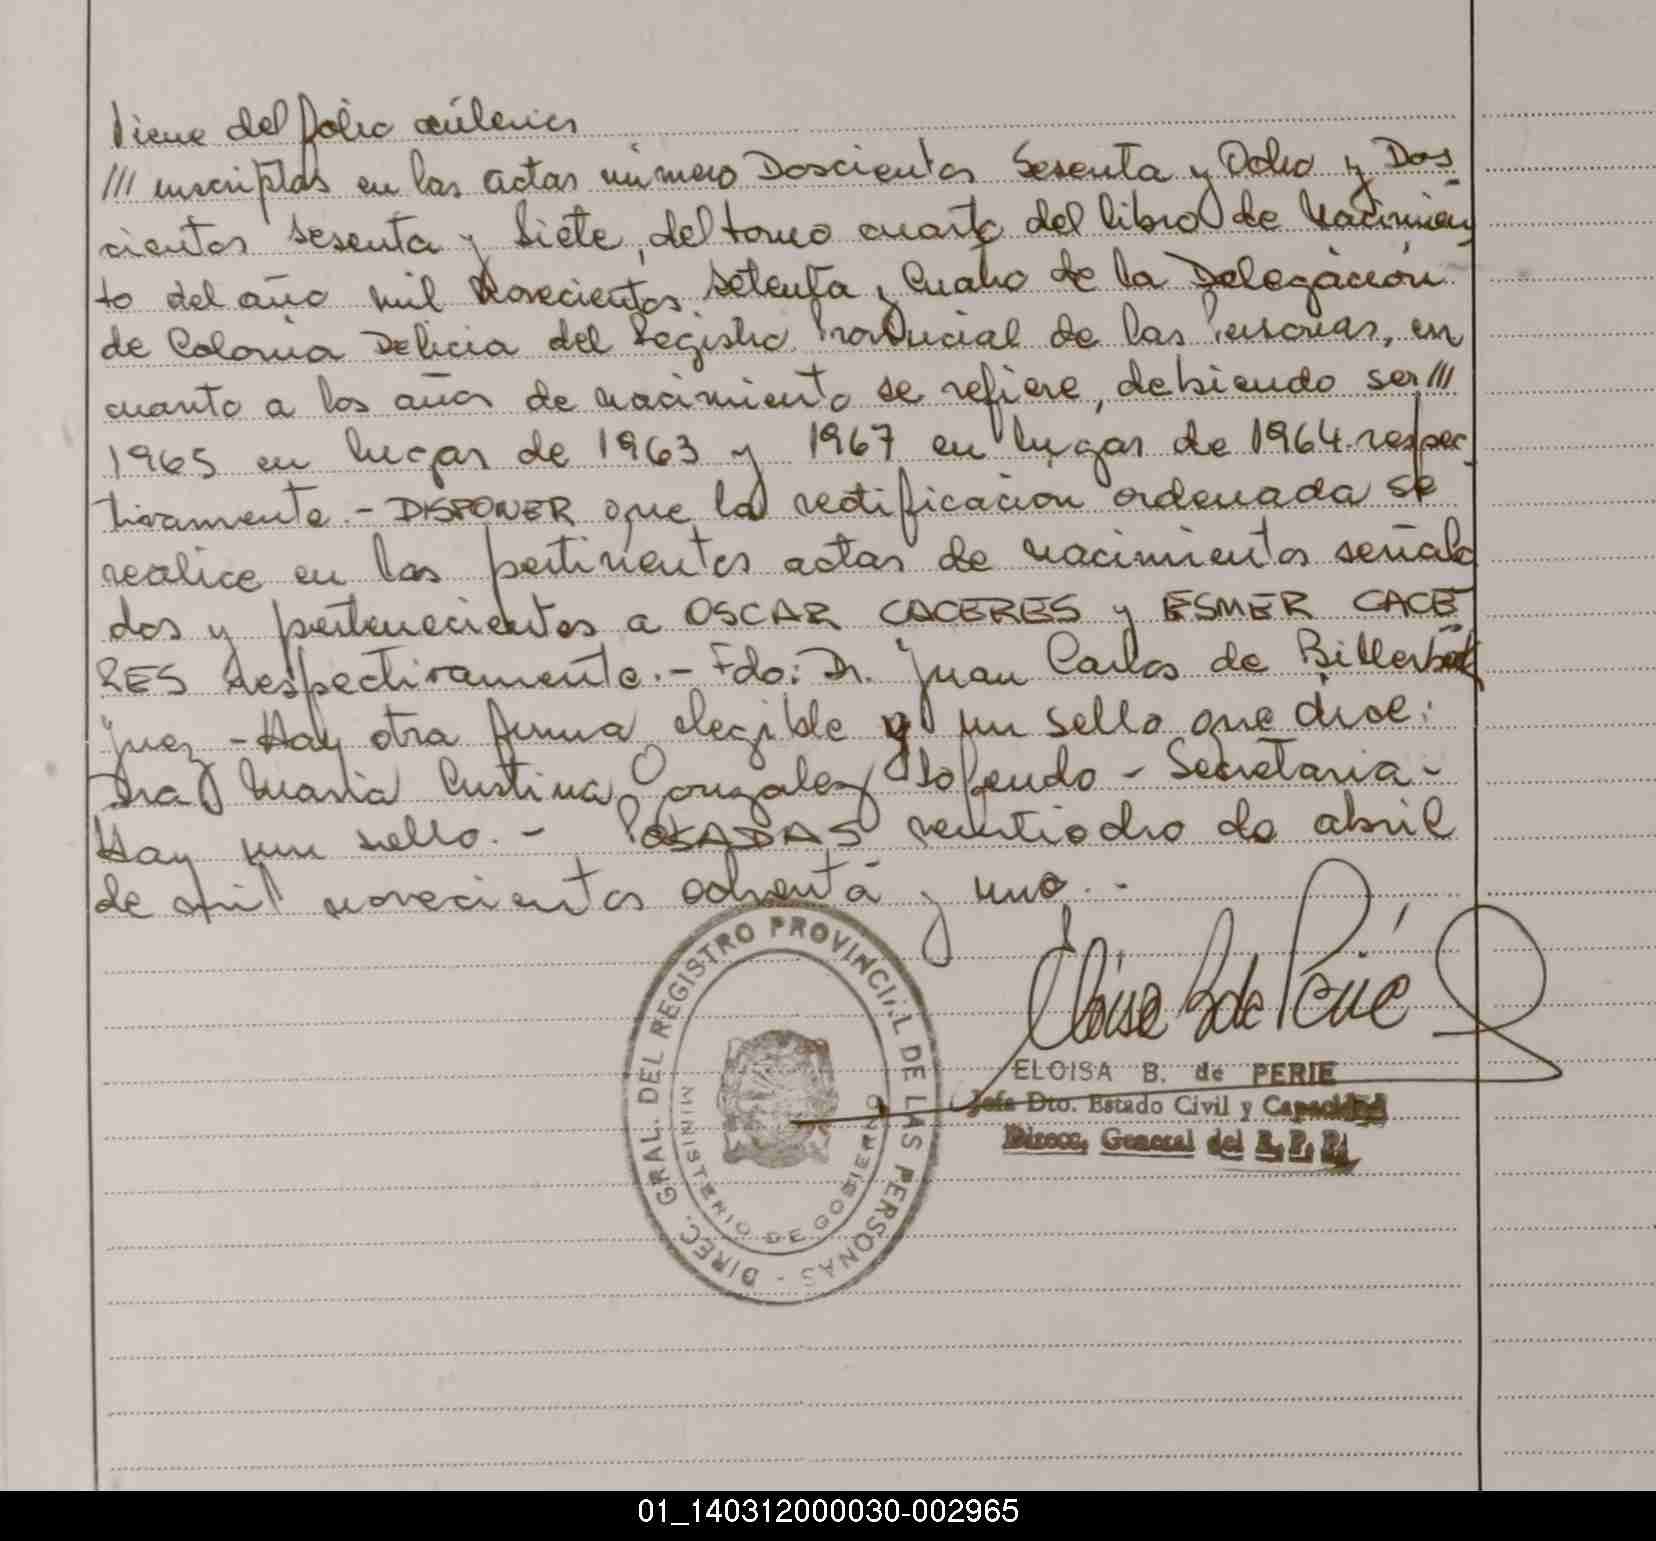 Viene del folio anterior
/// inscriptas en las actas número Doscientos Sesenta y Ocho y Dos
cientos sesenta y Siete, del tomo cuarto del libro de Nacimien
to del año mil Novecientos Setenta y Cuatro de la Delegación
de Colonia Delicia del Registro Provincial de las Personas, en
cuanto a los años de nacimiento se refiere, debiendo ser ///
1965 en lugar de 1963 y 1967 en lugar de 1964 respec
tivamente.- DISPONER que la rectificación ordenada se
realice en las pertinentes actas de nacimientos señala
das y pertenecientes a OSCAR CACERES y ESMER CACE
RES respectivamente.- Fdo: Dr. Juan Carlos de
Juez - Hay otra firma elegible y un sello que dice:
Dra María Cristina Gonzalez - Secretaria -
Hay un sello.- POSADAS veintiocho de abril
de mil novecientos ochenta y uno.-
DIREC. GRAL. DEL REGISTRO PROVINCIAL DE LAS PERSONAS -
MINISTERIO DE GOBIERNO
Eloisa B de Perié
ELOISA B. de PERIE
Jefa Dto. Estado Civil y Capacidad
Direcc. General del R. P. P.
01_140312000030-002965